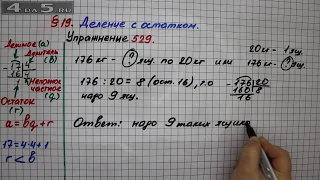 4a5.ru
§ 19. Деление с остатком.
Упражнение 529.
Делимое (а)
Делитель (b)
17 | 4
16 | 4
1
Неполное частное (q)
Остаток (r)
a = bq + r
17 = 4·4 + 1
r < b
20 кг – 1 ящ.
176 кг – ? по 20 кг или 176 кг – ?
176 : 20 = 8 (ост. 16), т.о
надо 9 ящ.
176 | 20
160 | 8
16
Ответ: надо 9 таких ящико